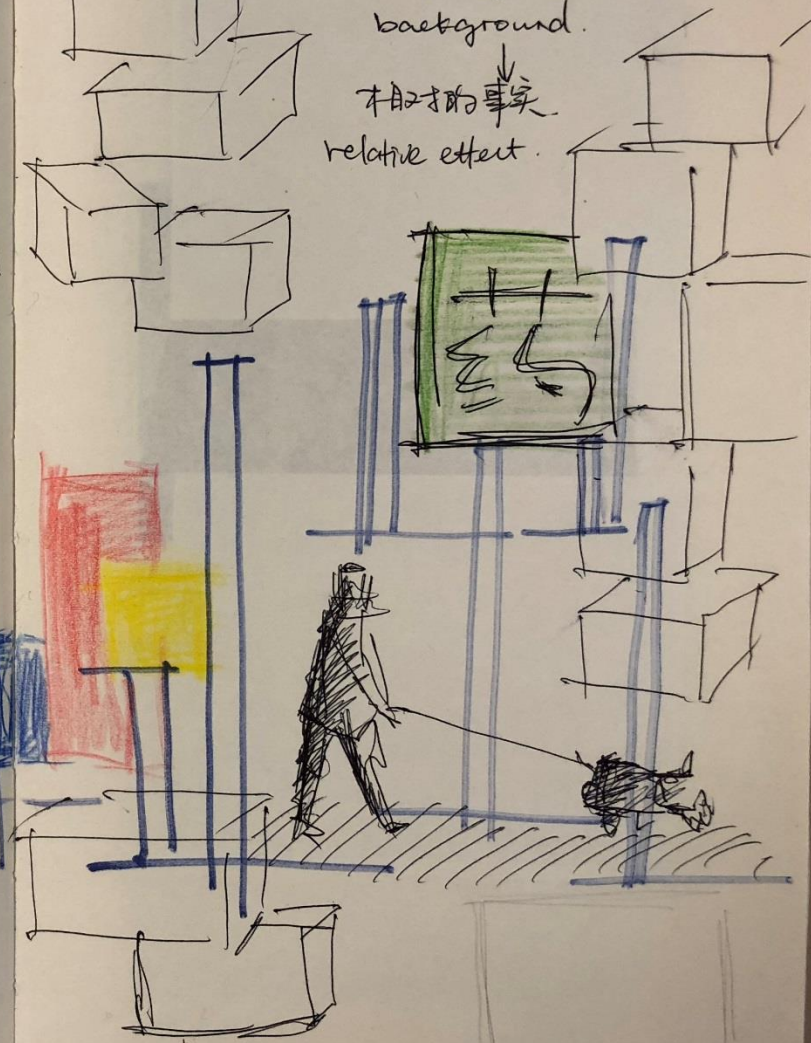 background.
相对的事实.
relative effect.
药